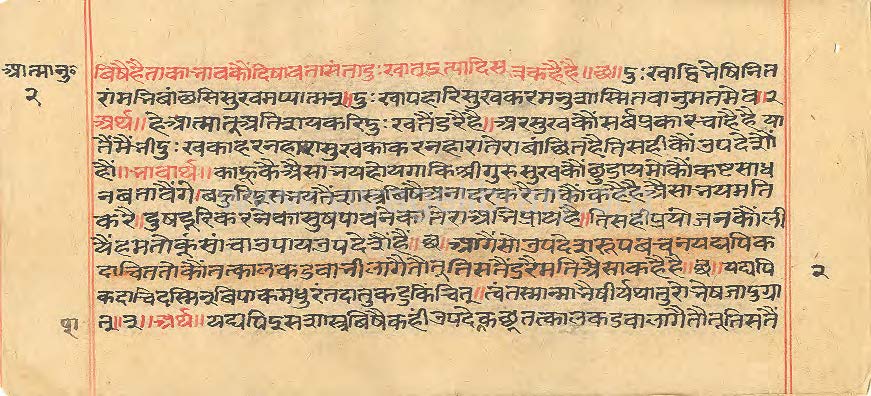 आत्मानु॰
२
बिषैहैताकाभावकौंदिषावतासंतादुःखातइत्यादिसूत्रकहैंहै॥छ॥दुःखाद्विभेषिनित
रांमभिबांछसिसुखमप्यात्मन्॥दुःखापहारिसुखकरमनुशास्मितवानुमतमेव॥२
अर्थ॥हेआत्मातूअतिशयकरिदुःखतैंडरैहै॥अरसुखकौंसर्वप्रकारचाहैहै या
तैंमैंभीदुःखकाहरनहारासुखकाकरनहारातेराबांछितहैतिसहीकौंउपदेशौं
हौं॥भावार्थ॥काहूकैऐसाभयहोयगाकिश्रीगुरुसुखकौंछुडायमोकौंकष्टसाध
नबतावैंगे॥बहुरिइसभयतैंशास्त्रबिषैअनादरकरैताकौंकहैहैऐसाभयमति
करै॥दुषदूरिकरनेकासुषपावनेकातेराअभिप्रायहै॥तिसहीप्रयोजनकौंली
यैंहमतोकूंसांचाउपायउपदेशैंहैं॥छ॥आगैंसोउपदेशरूपबचनयद्यपिक
दाचिततोकौंतत्कालकडवाभीलागैतौतूतिसतैंडरैमतिऐसाकहैहै॥छ॥यद्यपि
२
कदाचिदस्मिन्बिपाकमधुरंतदातुकटुकिंचित्॥त्वंतस्मान्माभैषीर्यथातुरोभेषजादुग्रा
त्॥३॥अर्थ॥यद्यपिइसशास्त्रबिषैकहीउपदेश